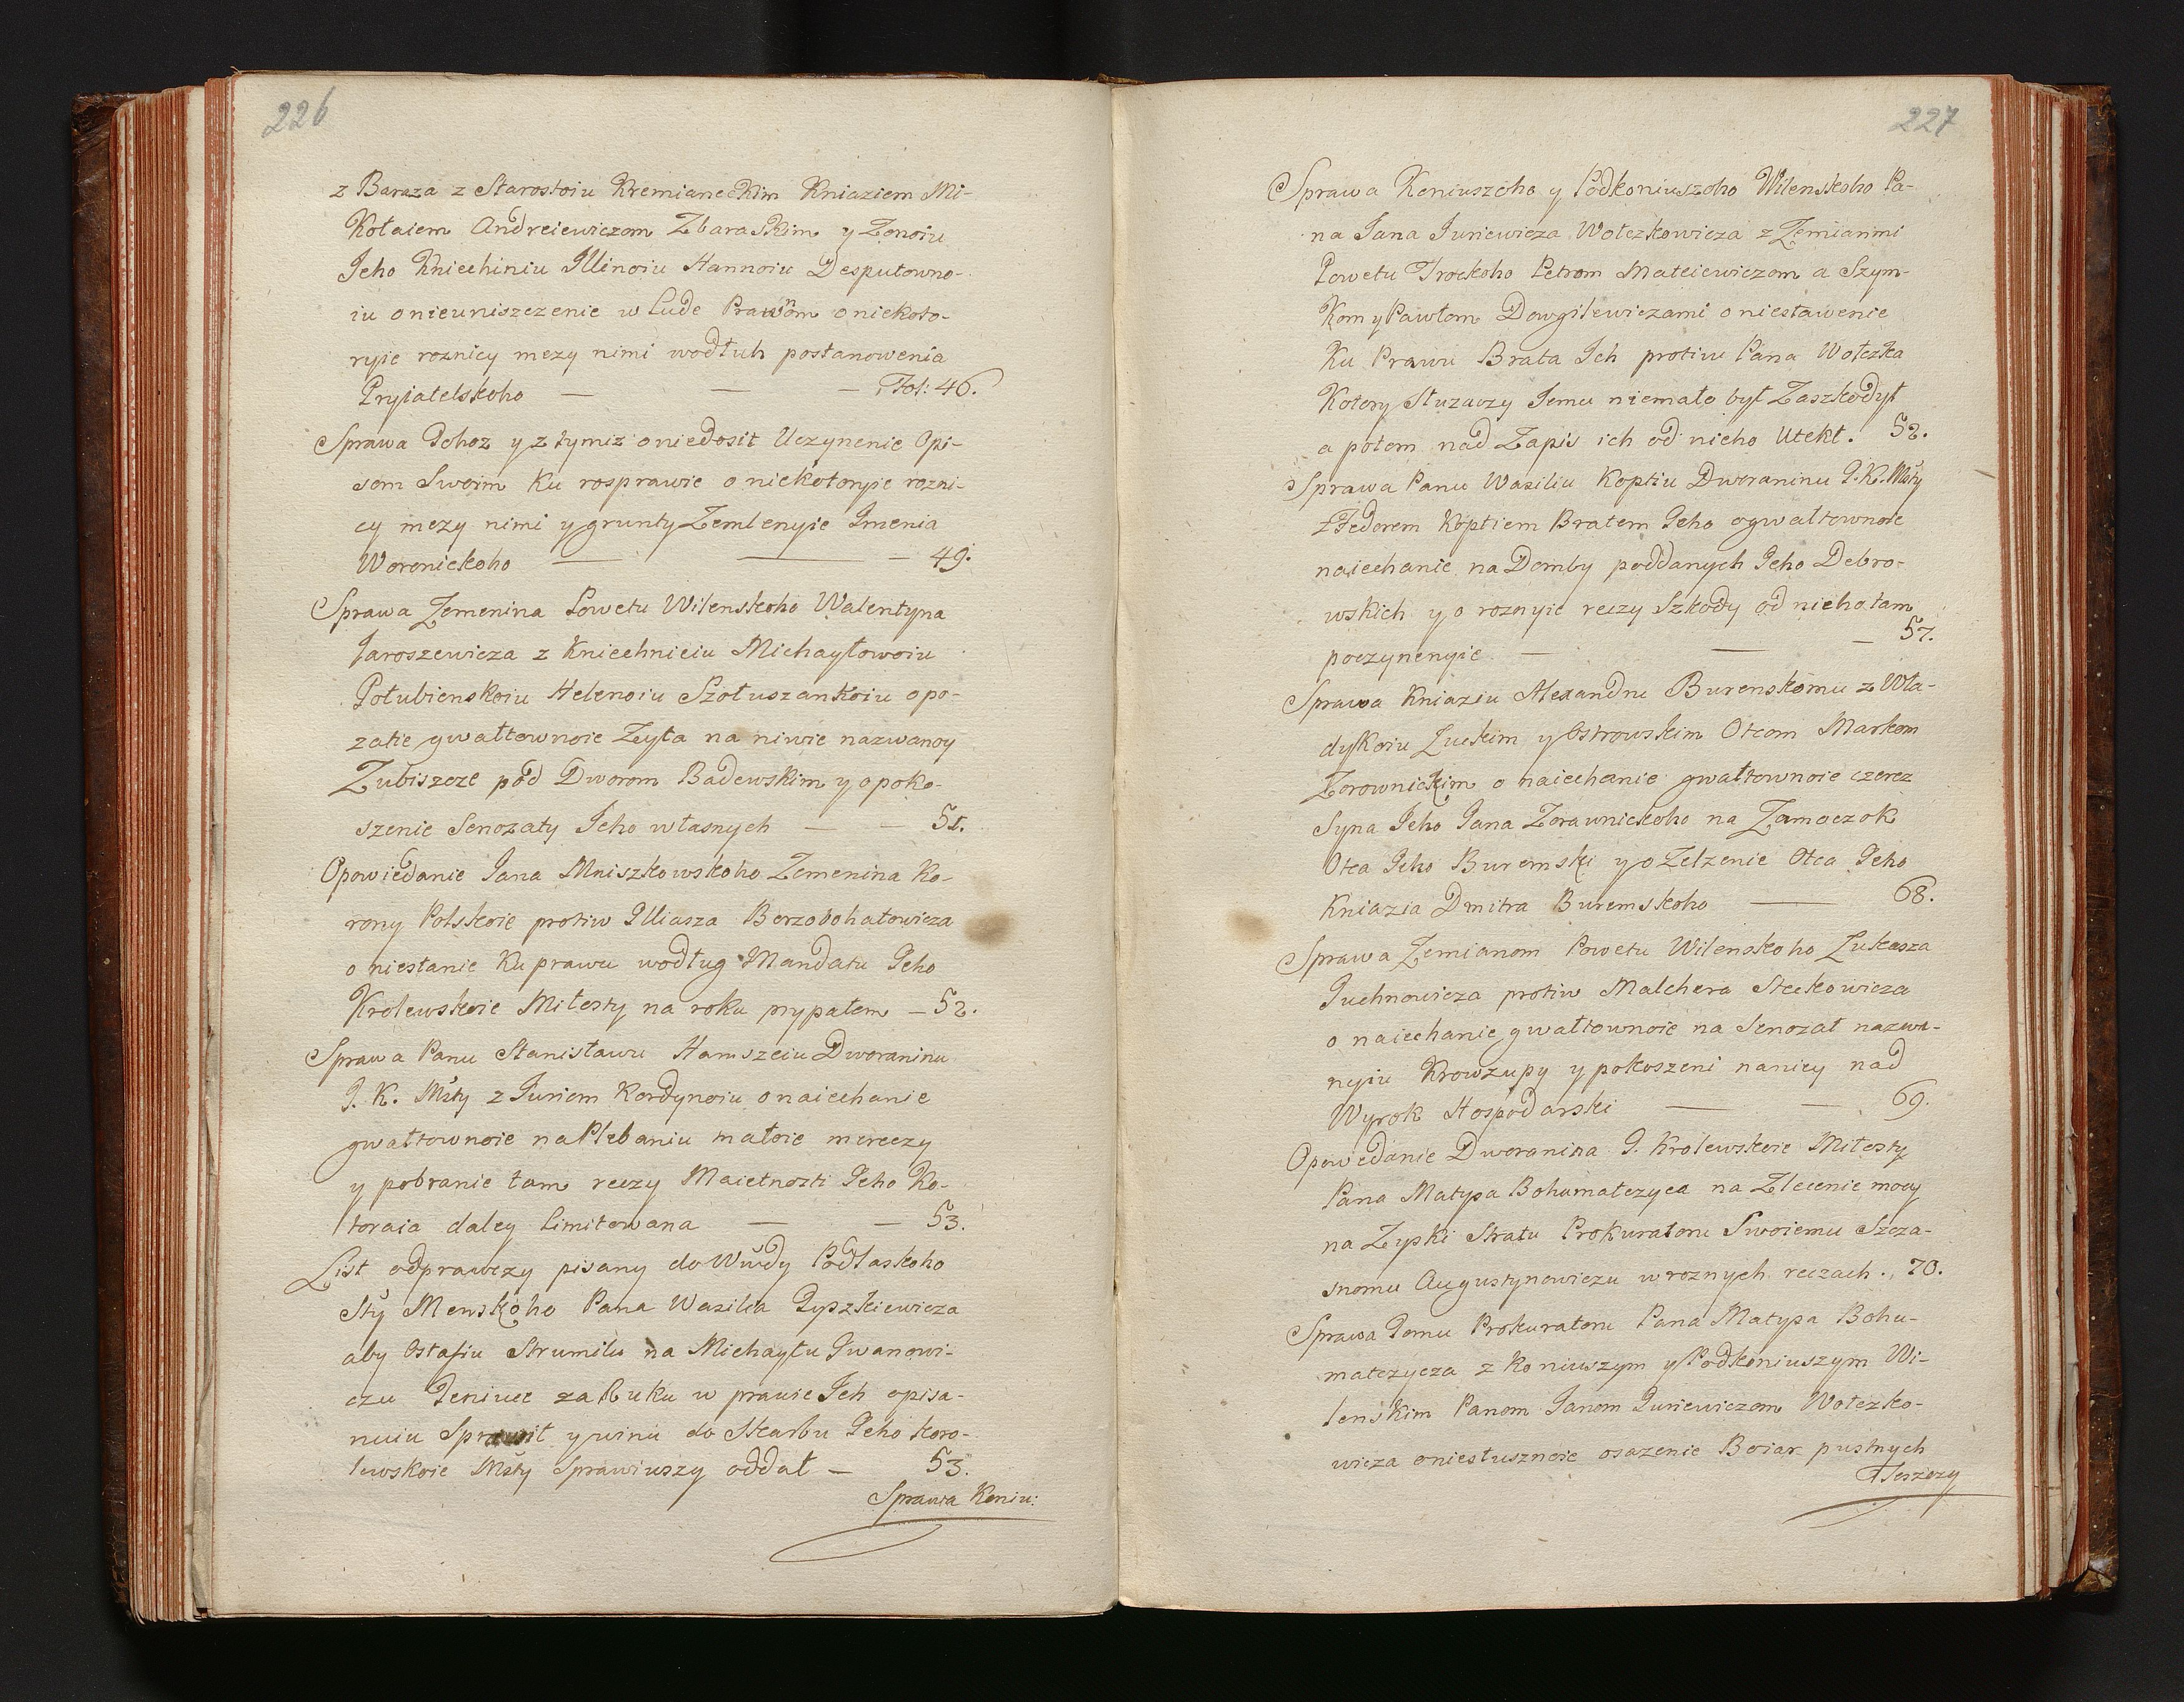 226
z Baraza z Starostoiu Kremianeckim Kniaziem Mi-
kołaiem Andreiewiczom Zbaraskim y Zonoiu
Jeho Kniechiniu Illinoiu Hannoiu Desputowno-
iu o nieuniszczenie w Lude Prawnom o niekoto-
ryie roznicy mezy nimi wodłuh postanowenia
Pryiatelskoho — — — Fol: 46.
Sprawa Tehoz y z tymiz o niedosit Uczynenie Opi-
som Swoim Ku rosprawie o niekotoryie rozni-
cy mezy nimi y grunty Zemlenyie Imenia
Woronickoho — — — 49.
Sprawa Zemenina Powetu Wilenskoho Walentyna
Jaroszewicza z Kniehniciu Michayłowoiu
Połubienskoiu Helenoiu Szołuszankoiu o po-
zatie gwałtownoie Zyta na niwie nazwanoy
Zubiszcze pod Dworom Badewskim y o poko-
szenie Senozaty Jeho własnych — — 51.
Opowiedanie Jana Mniszkowskoho Zemenina Ko-
rony Polskoie protiw Illiasza Borzobohatowicza
o niestanie Ku prawu wodług Mandatu Jeho
Krolewskoie Miłosty na roku prypałem — 52.
Sprawa Panu Stanisławu Hamszeiu Dworaninu
J. K. Msty z Juriem Kordynoiu o naiechanie
gwałtownoie na Plebaniu małoie mereczy
y pobranie tam reczy Maietnosti Jeho Ko-
toraia daley Limitowana — — 53.
List odprawczy pisany do Wwdy Podlaskoho
Sty Menskoho Pana Wasilia Tyszkiewicza
aby Ostafiu Strumilu na Michayłu Jwanowi-
czu Jeniuce za Ruku w prawie Jeh opisa-
nuiu Sprawit y winu do Skarbu Jeho Koro-
lewskoie Msty Sprawiwszy oddał — 53.
Sprawa Koniu:
227
Sprawa Koniuszoho y Podkoniuszoho Wilenskoho Pa-
na Jana Juriewicza Wołczkowicza z Zemianmi
Powetu Trockoho Petrom Mateiewiczom a Szym-
kom y Pawłom Dowgilewiczami o niestawenie
Ku Prawu Brata Jch protiw Pana Wołczka
Kotory Słuzaczy Jemu niemało był Zaszkodył
a potom nad Zapis ich od nieho Utekł. 52.
Sprawa Panu Wasiliu Koptiu Dworaninu J. K. Msty
z Fedorem Koptiem Bratem Jeho o gwałtownoie
naiechanie na Domby poddanych Jeho Debro-
wskich y o roznyie reczy Szkody od nieho tam
poczynenyie — — — 57.
Sprawa Kniaziu Alexandru Buremskomu z Wła-
dykoiu Łuckim y Ostrowskim Otcom Markom
Zorownickim o naiechanie gwałtownoie czerez
Syna Jeho Jana Zorawnickoho na Zamoczok
Otca Jeho Buremski y o Zelzenie Otca Jeho
Kniazia Dmitra Buremskoho — 68.
Sprawa Zemianom Powetu Wilenskoho Łukasza
Juchnowicza protiw Malchera Steckowicza
o naiechanie gwałtownoie na Senozat nazwa-
nyiu Krowzupy y pokoszeni naniey nad
Wyrok Hospodarski — — 69.
Opowedanie Dworanina J. Krolewskoie Miłosty
Pana Matysa Bohumatczyca na Zlecenie mocy
na Zyski Stratu Prokuratoru Swoiemu Szcza-
snomu Augustynowiczu w roznych reczach. 70.
Sprawa Tomu Prokuratoru Pana Matysa Bohu-
matczycza z Koniuszym y Podkoniuszym Wi-
lenskim Panom Janom Juriewiczom Wołczko-
wicza o niesłusznoie osazenie Boiar pustnych